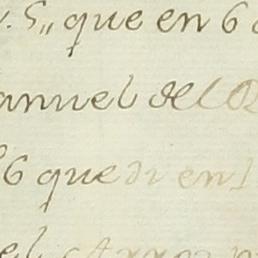 S,, que en 6
anuel del
6 que di en 1
el